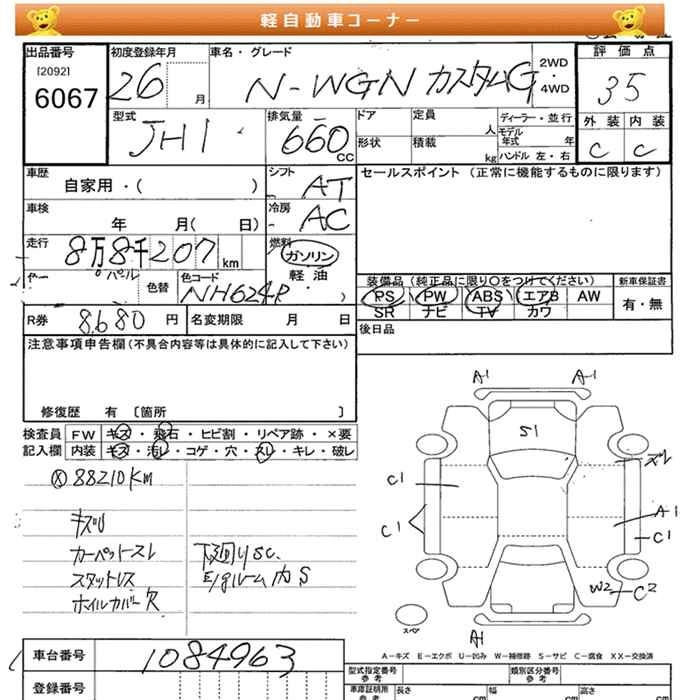 軽自動車コーナー
出品番号 初度登録年月 車名・グレード 評価点
[2092]
6067
26 月 N-WGN カスタムG 2WD 4WD 35
型式 排気量 ドア 定員 人 ディーラー・並行 外装 内装
JH1 660 CC 形状 積載 kg モデル年式 年 C C
ハンドル 左・右
車歴 シフト セールスポイント (正常に機能するものに限ります)
自家用・( ) AT
車検 冷房
年 月( 日) AC
走行 燃料
8万8千207 km ガソリン
パール 軽油
色替 色コード
NH624P )
装備品 (純正品に限り○をつけてください) 新車保証書
PS PW ABS エアB AW 有・無
SR ナビ TV カワ
R券 8,680 円 名変期限 月 日
後日品
注意事項申告欄 (不具合内容等は具体的に記入して下さい)
修復歴 有 〔箇所 〕
検査員 FW キズ・飛石・ヒビ割・リペア跡・×要
記入欄 内装 キズ・汚レ・コゲ・穴・スレ・キレ・破レ
88210KM
カーペットスレ
スタットレス
ホイルカバー欠
下廻りSC.
E/gルーム内S
A1 A1
S1
ズレ
C1
C1
A1
C1
W2 C2
スペア
A1
A-キズ E-エクボ U-凹み W-補修跡 S-サビ C-腐食 XX-交換済
車台番号 1084963
登録番号
型式指定番号 参考 類別区分番号 参考
車庫証明用 参考 長さ cm 幅 cm 高さ cm